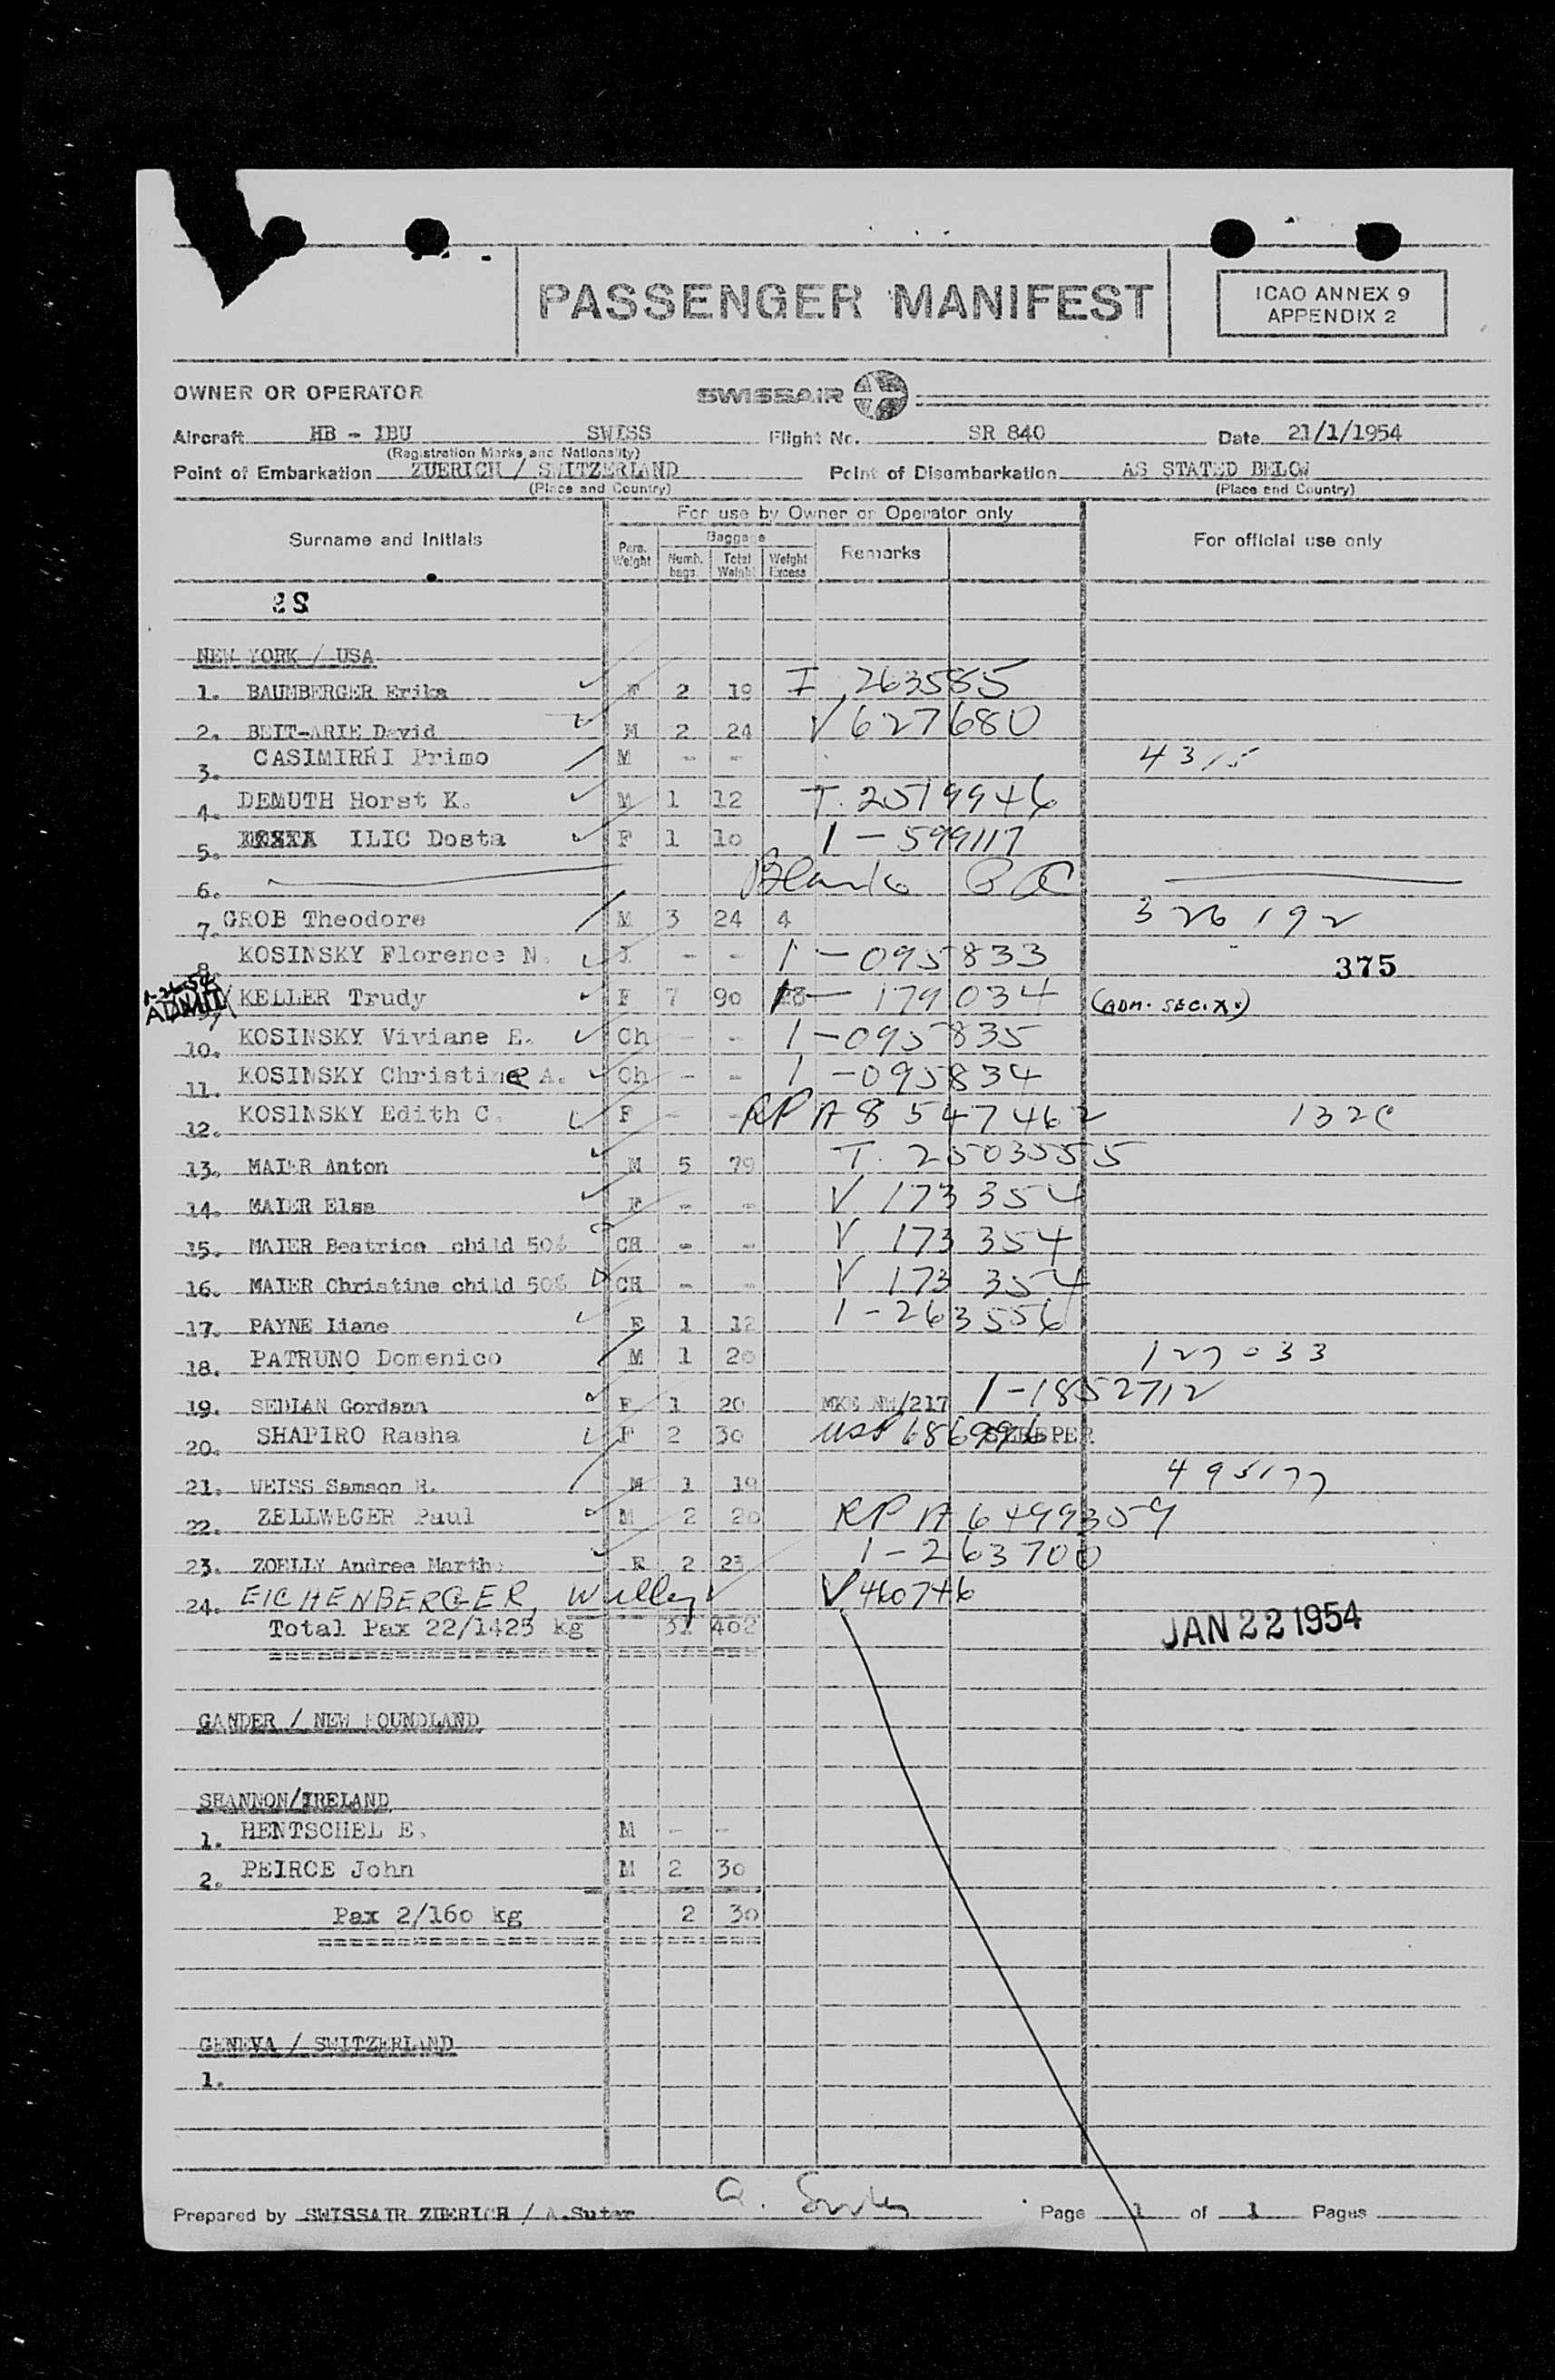 PASSENGER MANIFEST
ICAO ANNEX 9
APPENDIX 2
OWNER OR OPERATOR
SWISSAIR
Aircraft HB - IBU SWISS Flight No. SR 840 Date 21/1/1954
(Registration Marks and Nationality)
Point of Embarkation ZUERICH / SWITZERLAND Point of Disembarkation AS STATED BELOW
(Place and Country) (Place and Country)
For use by Owner or Operator only
Surname and Initials Pers. Weight Baggage Numb. bags Total Weight Weight Excess Remarks For official use only
NEW YORK / USA
1. BAUMBERGER Erika F 2 19 I 263585
2. BEIT-ARIE David M 2 24 V 627680
3. CASIMIRRI Primo M - - 4315
4. DEMUTH Horst K. M 1 12 T. 2519946
5. ILIC Dosta F 1 10 1-599117
6. Blank
7. GROB Theodore M 3 24 4 326192
8. KOSINSKY Florence N. - - 1-095833
375
1-26-54 ADMIT KELLER Trudy F 7 90 1-179034 (ADM. SEC. X.)
10. KOSINSKY Viviane E. Ch - - 1-095835
11. KOSINSKY Christine A. Ch - - 1-095834
12. KOSINSKY Edith C. F - - RP A8547462 132C
13. MAIER Anton M 5 79 T. 2503555
14. MAIER Elsa F - - V 173354
15. MAIER Beatrice child 50% CH - - V 173354
16. MAIER Christine child 50% CH - - V 173354
17. PAYNE Liane F 1 12 1-263556
18. PATRUNO Domenico M 1 20 127033
19. SEDLAN Gordana F 1 20 MKE NW/217 1-1852712
20. SHAPIRO Rasha F 2 30 USP 686996 SLEEPER
21. WEISS Samson R. M 1 19 495177
22. ZELLWEGER Paul M 2 20 RP A6499359
23. ZOELLY Andree Marthe F 2 23 1-263700
24. EICHENBERGER, Willy V 460746
Total Pax 22/1425 kg 31 402
JAN 22 1954
GANDER / NEW FOUNDLAND
SHANNON/IRELAND
1. HENTSCHEL E. M - -
2. PEIRCE John M 2 30
Pax 2/160 kg 2 30
GENEVA / SWITZERLAND
1.
Prepared by SWISSAIR ZUERICH / A.Suter A. Suter Page 1 of 1 Pages